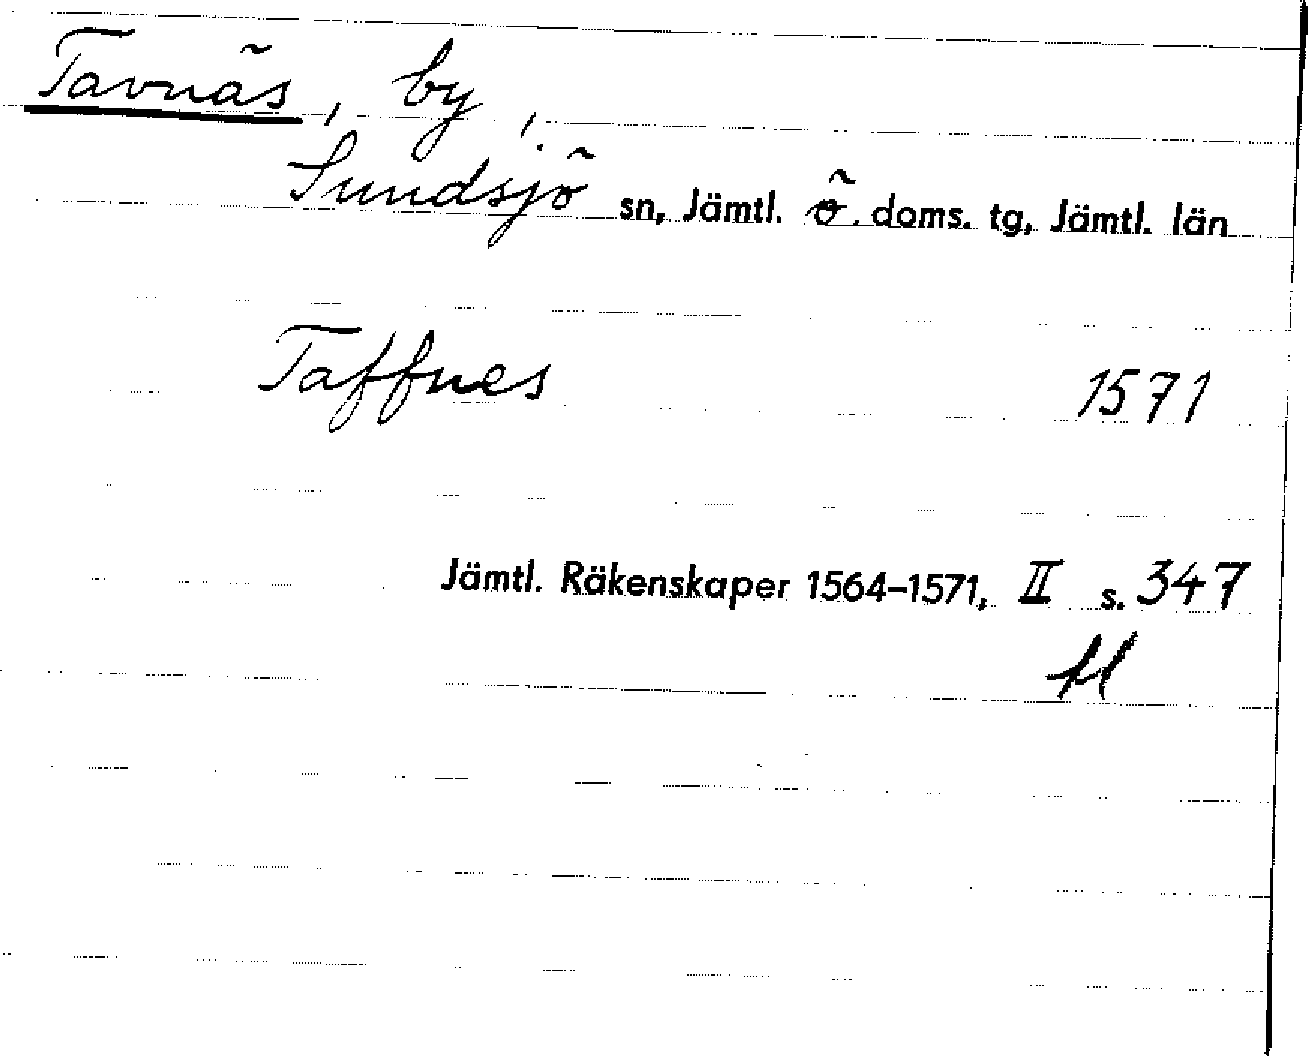 Tavnäs, by,
Sundsjö sn, Jämtl. ö. doms. tg, Jämtl. län
Taffnes 1571
Jämtl. Räkenskaper 1564–1571, II s. 347